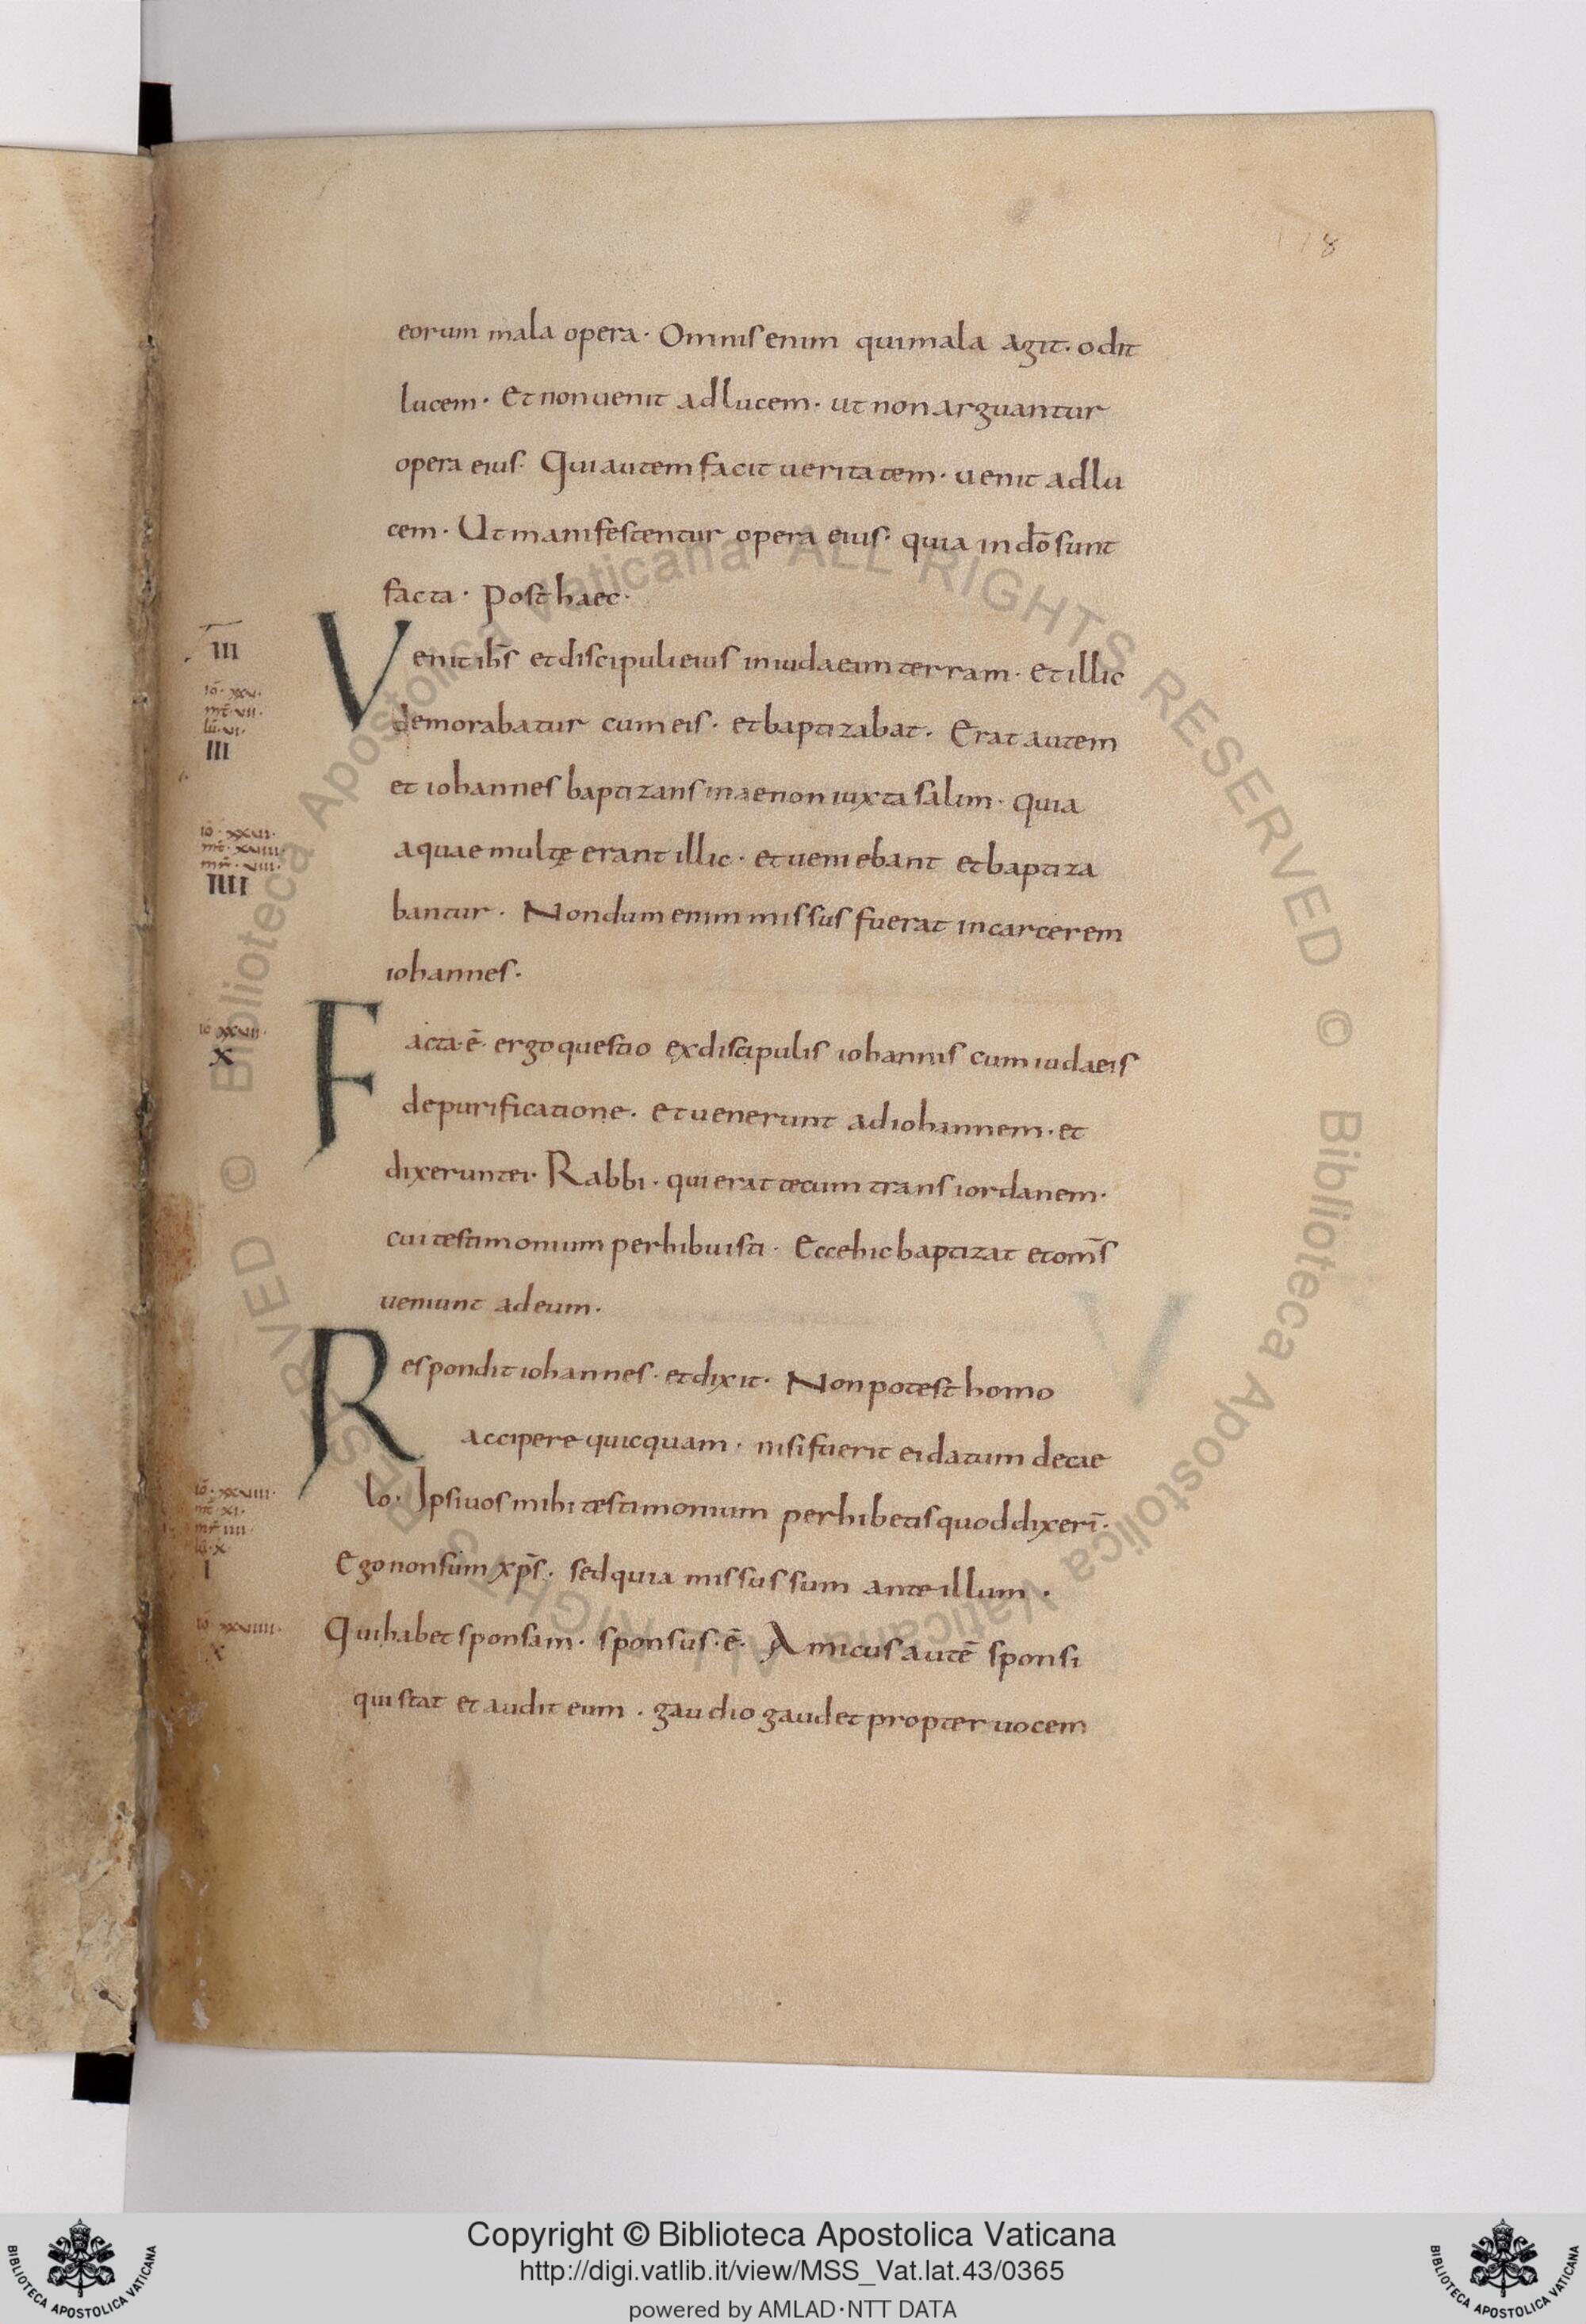 178
eorum mala opera· Omnis enim qui mala agit· odit
lucem· Et non uenit ad lucem· ut non arguantur
opera eius· Qui autem facit ueritatem· uenit ad lu
cem· Ut manifestentur opera eius· quia in dō sunt
facta· Post haec·
III
Venit ih̄s et discipuli eius in iudaeam terram· Et illic
iō· xxv·
mt̄· vii·
lū· vi·
III
demorabatur cum eis· et baptizabat· Erat autem
et iohannes baptizans in aenon iuxta salim· quia
iō· xxvi·
mr̄· viii·
IIII
aquae multę erant illic· et ueniebant et baptiza
bantur· Nondum enim missus fuerat in carcerem
iohannes·
iō xxvii·
X
Facta·ē· ergo questio ex discipulis iohannis cum iudaeis
de purificatione· Et uenerunt ad iohannem· et
dixerunt ei· Rabbi· qui erat tecum trans iordanem·
cui testimonium perhibuisti· Ecce hic baptizat et om̄s
ueniunt ad eum·
Respondit iohannes· et dixit· Non potest homo
accipere quicquam· nisi fuerit ei datum de cae
iō· xxviii·
mt̄· xi·
mr̄ iiii·
lū· x·
I
lo· Ipsi uos mihi testimonium perhibetis quod dixerī·
Ego non sum xp̄s· sed quia missus sum ante illum·
iō xxviiii·
X
Qui habet sponsam· sponsus·ē· Amicus autē sponsi
qui stat et audit eum· gaudio gaudet propter uocem
Biblioteca Apostolica Vaticana ALL RIGHTS RESERVED © Biblioteca Apostolica Vaticana ALL RIGHTS RESERVED ©
Copyright © Biblioteca Apostolica Vaticana
http://digi.vatlib.it/view/MSS_Vat.lat.43/0365
powered by AMLAD·NTT DATA
BIBLIOTECA APOSTOLICA VATICANA
BIBLIOTECA APOSTOLICA VATICANA